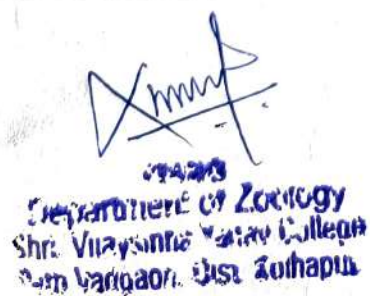 Department of Zoology
Shri. Vijaysinha Yadav College
Vadgaon, Dist Kolhapur